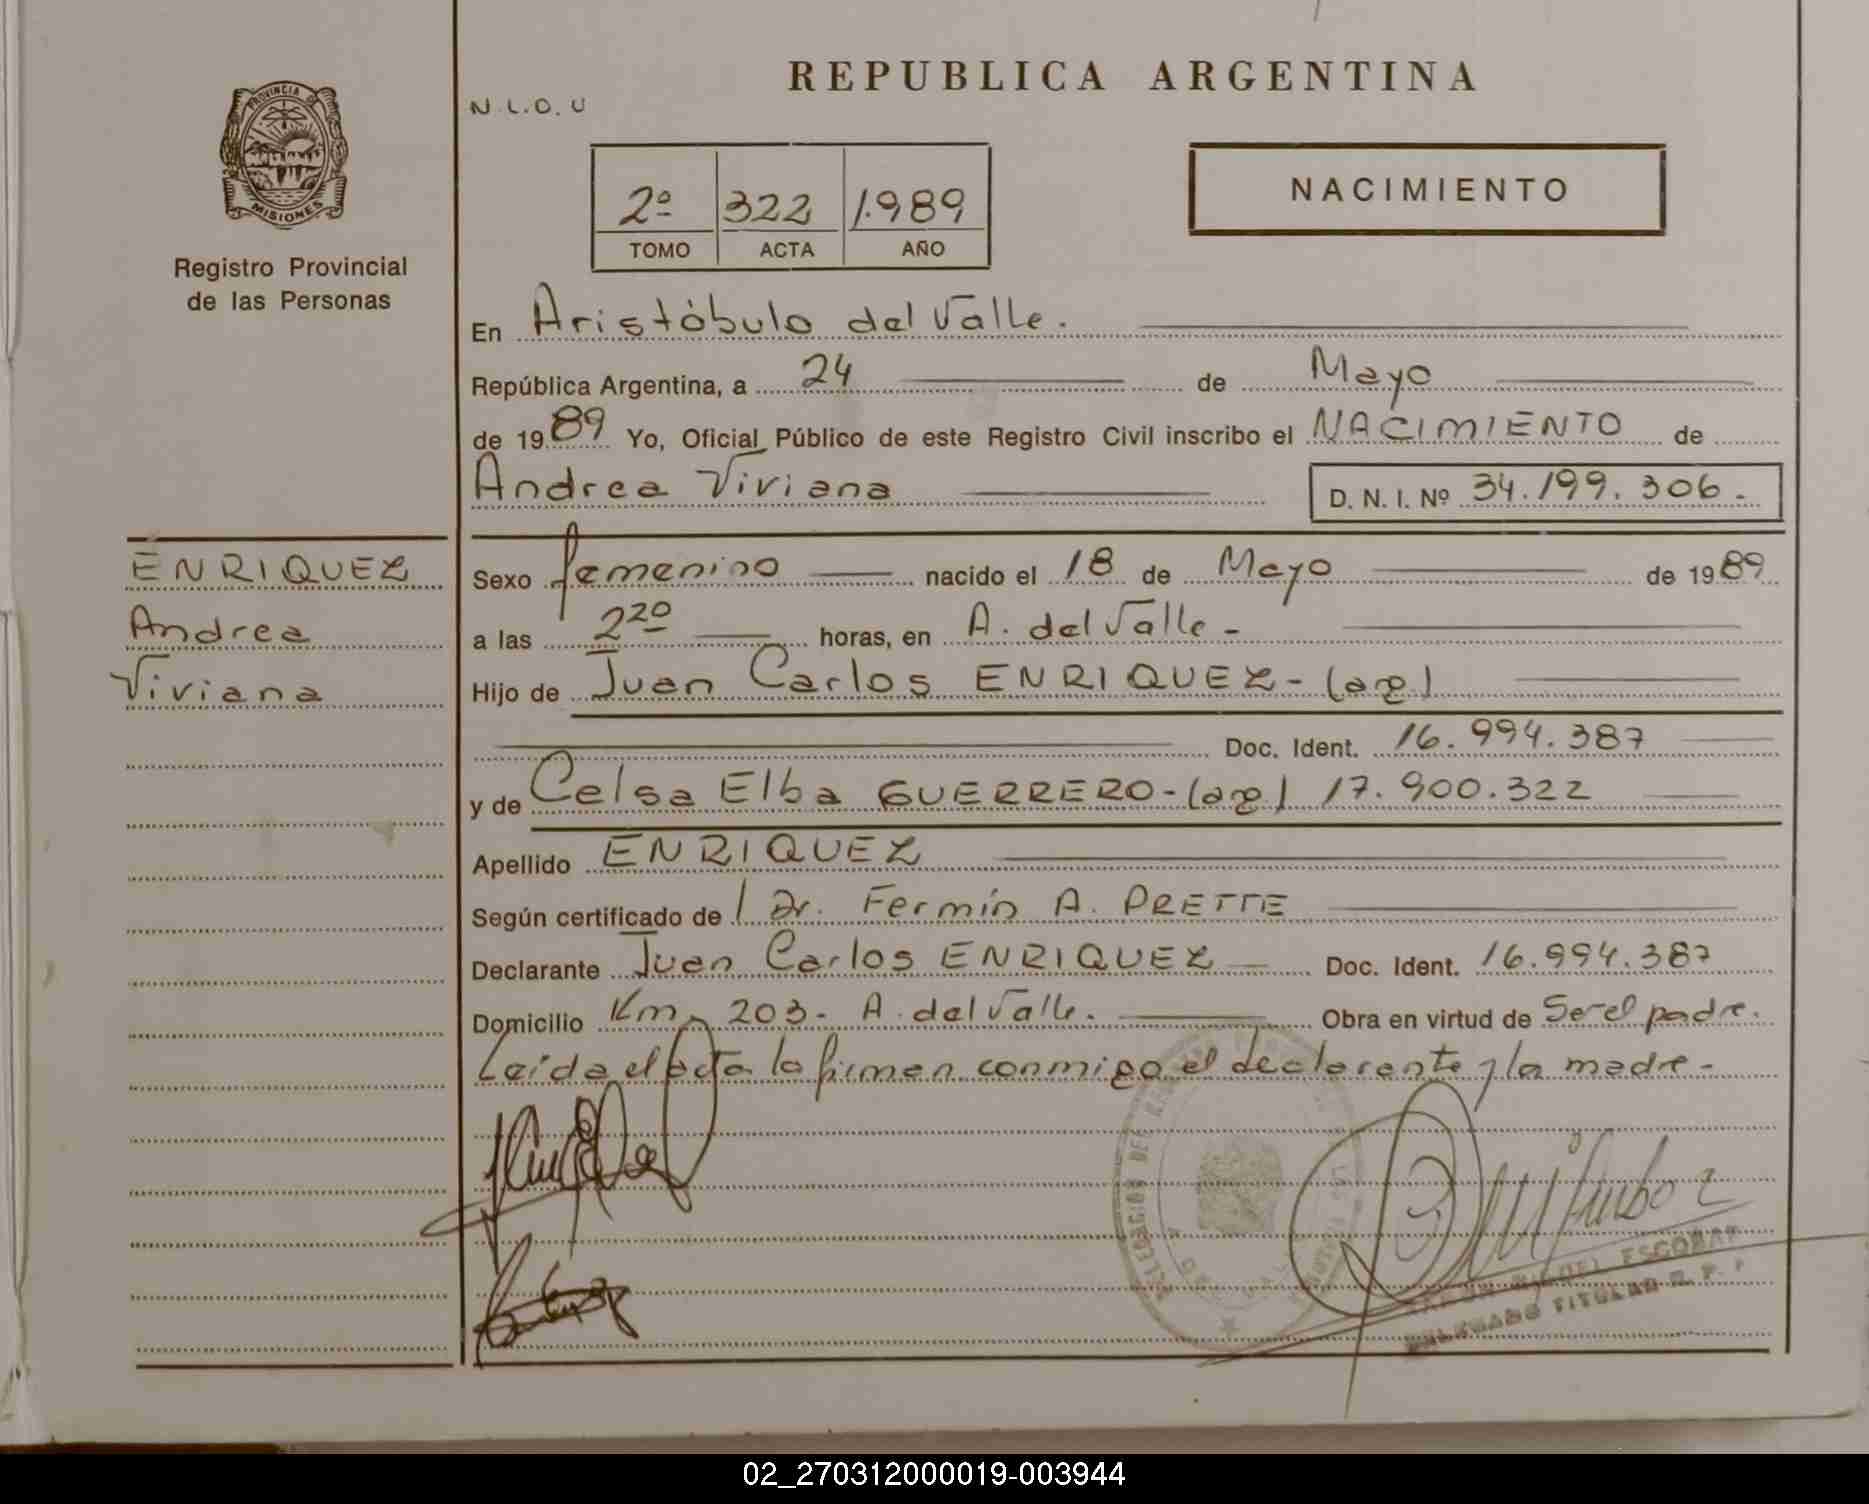 REPUBLICA ARGENTINA
N.L.O.U
PROVINCIA DE
MISIONES
Registro Provincial
de las Personas
2º 322 1.989
TOMO ACTA AÑO
NACIMIENTO
En Aristóbulo del Valle.
República Argentina, a 24 de Mayo
de 1989 Yo, Oficial Público de este Registro Civil inscribo el NACIMIENTO de
Andrea Viviana D. N. I. Nº 34.199.306.-
ENRIQUEZ
Andrea
Viviana
Sexo femenino nacido el 18 de Mayo de 1989
a las 2 20 horas, en A. del Valle -
Hijo de Juan Carlos ENRIQUEZ - (arg)
Doc. Ident. 16.994.387
y de Celsa Elba GUERRERO - (arg) 17.900.322
Apellido ENRIQUEZ
Según certificado de Dr. Fermín A. PRETTE
Declarante Juan Carlos ENRIQUEZ Doc. Ident. 16.994.387
Domicilio Km. 203 - A. del Valle. Obra en virtud de Ser el padre.
Leída el acta la firman conmigo el declarante y la madre -
ESCOBAR
DELEGADO TITULAR R. P. P.
02_270312000019-003944